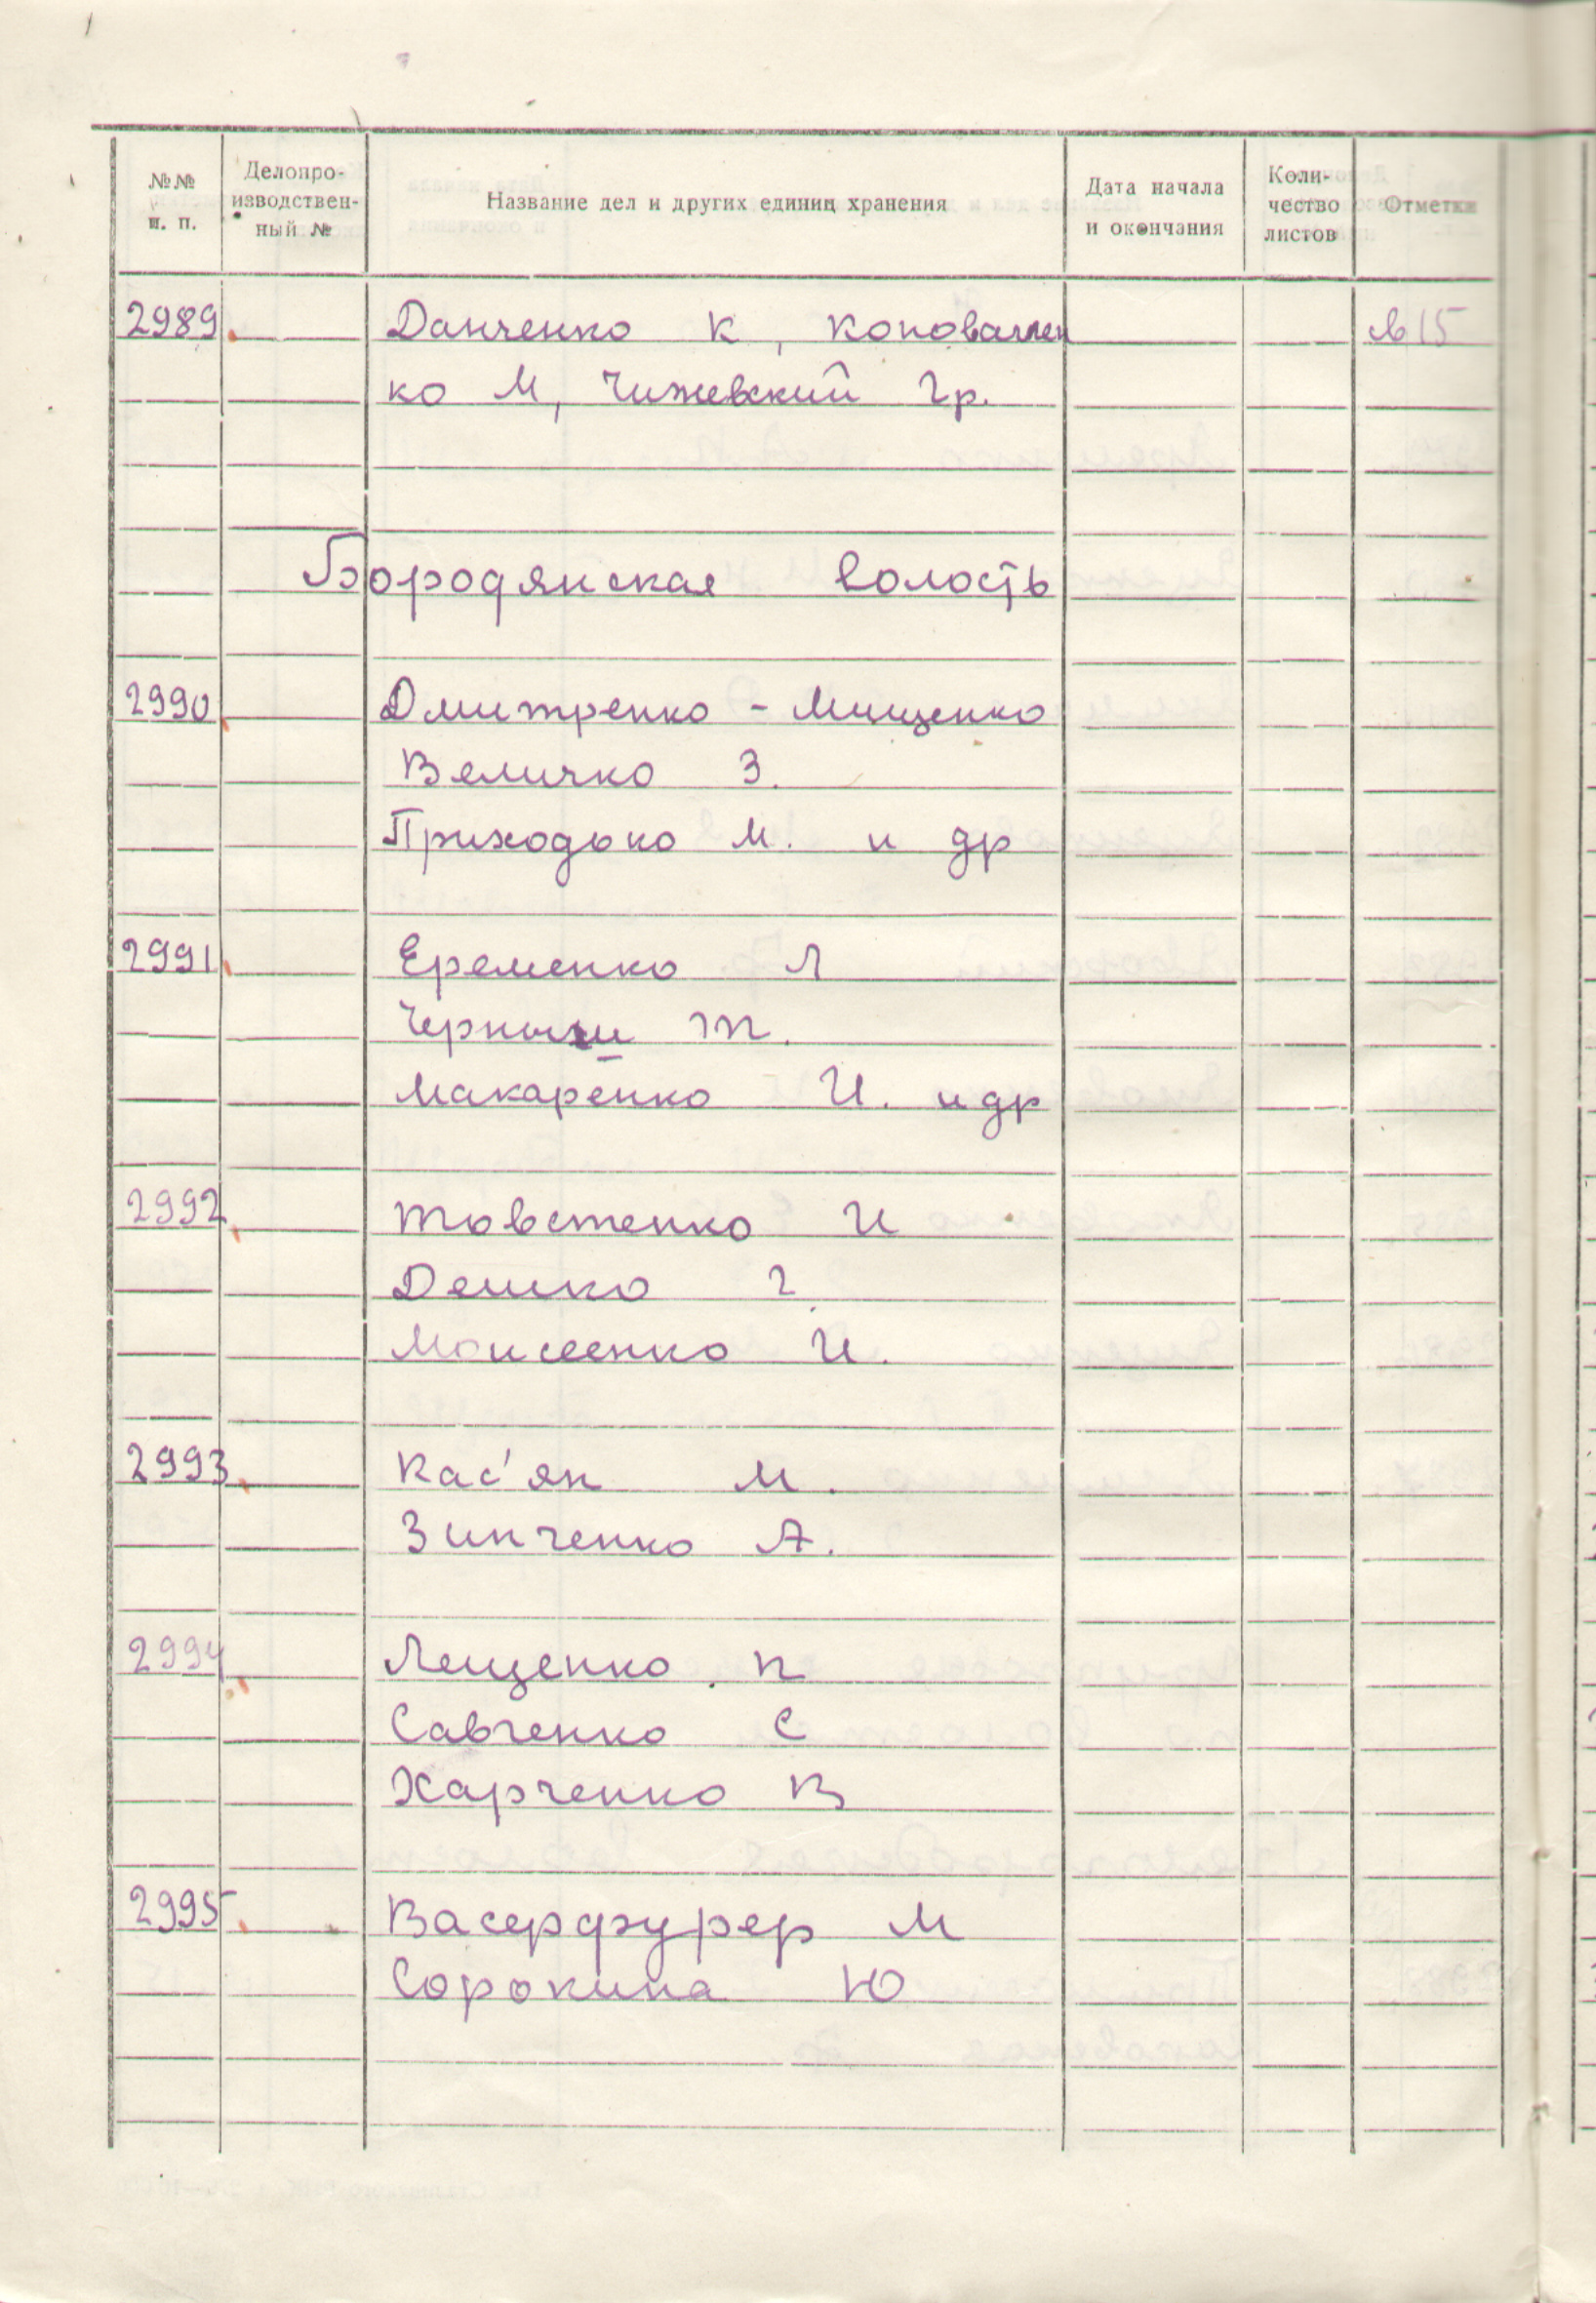 №№ п. п. Делопроизводственный № Название дел и других единиц хранения Дата начала и окончания Количество листов Отметки
2989 Данченко К, Коновален
ко М, Чижевский Гр.
Бородянская волость
2990 Дмитренко - Мищенко
Величко З.
Приходько М. и др
2991 Еременко Л
Черныш Т.
Макаренко И. и др
2992 Товстенко И
Дешко Г.
Моисеенко И.
2993 Кас'ян М.
Зинченко А.
2994 Лещенко П
Савченко С
Харченко В
2995 Васерфурер М
Сорокина Ю